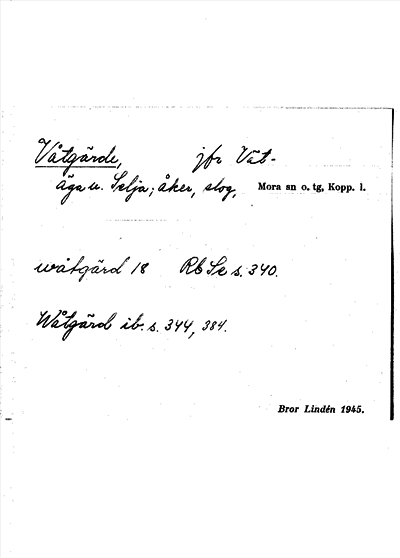 Våtgärde, jfr Våt-
äga u. Selja; åker, slog, Mora sn o. tg, Kopp. l.
wåtgärd 18 Rb Se s. 340.
Wåtgärd ib. s. 344, 384.
Bror Lindén 1945.